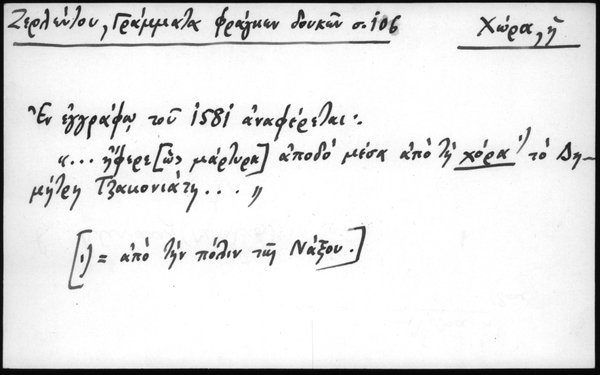 Ζερλέντου, Γράμματα φράγκων δουκῶν σ. 106
Χώρα, ἡ
Ἐν ἐγγράφῳ τοῦ 1581 ἀναφέρεται:
«... ἤφερε [ὡς μάρτυρα] ἀποδὸ μέσα ἀπὸ τὴ χόρα¹) τὸ Δη-
μήτρη Τζακονιάτη... »
[¹) = ἀπὸ τὴν πόλιν τῆς Νάξου.]